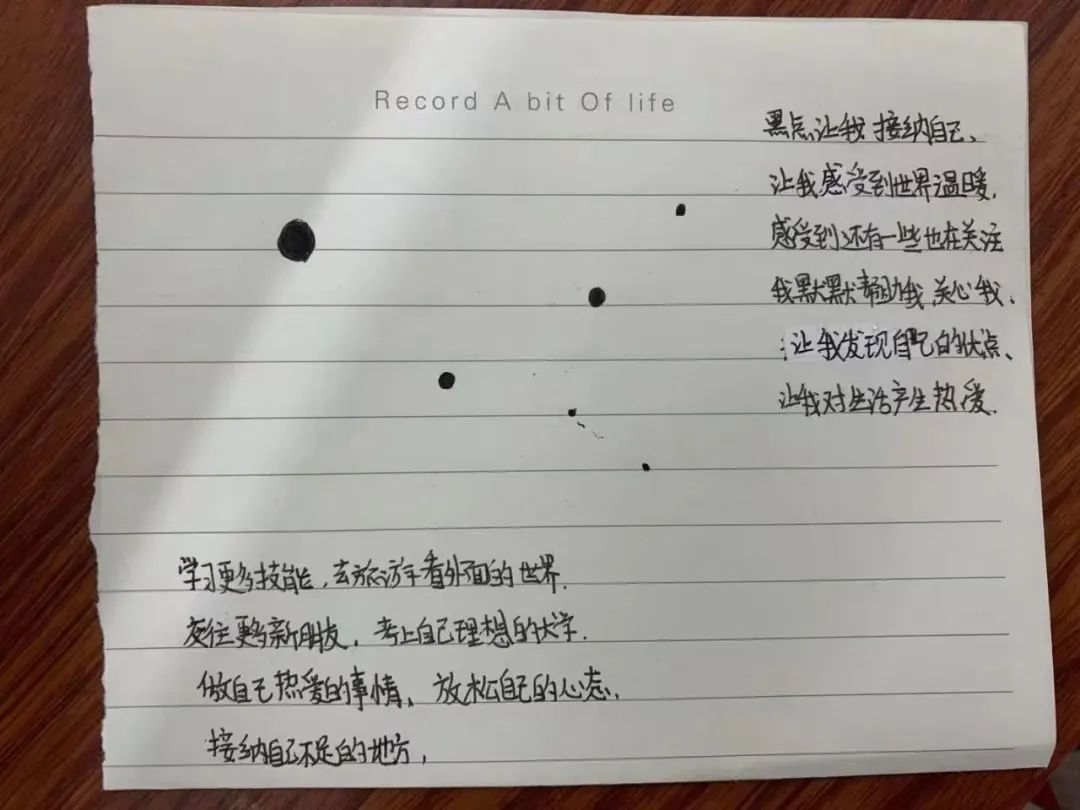 Record A bit Of life
黑点让我接纳自己、
让我感受到世界温暖.
感受到还有一些也在关注
我默默帮助我,关心我、
让我发现自己的优点、
让我对生活产生热爱.
学习更多技能,去旅游看外面的世界.
交往更多新朋友,考上自己理想的大学.
做自己热爱的事情、放松自己的心态.
接纳自己不足的地方,